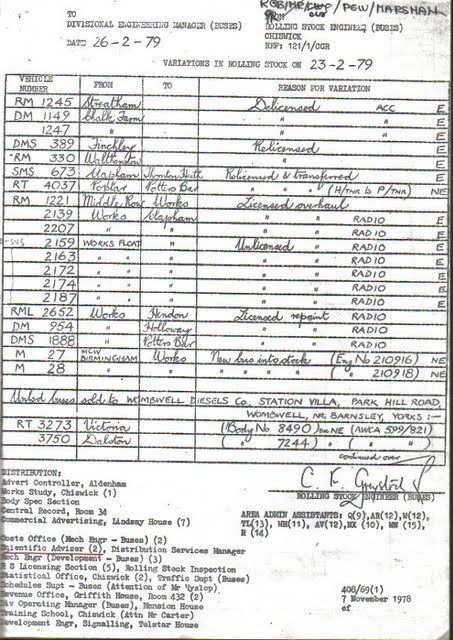 TO
DIVISIONAL ENGINEERING MANAGER (BUSES)
ROLLING STOCK ENGINEER (BUSES)
CHISWICK
DATE 26-2-79
REF: 121/1/CGR
VARIATIONS IN ROLLING STOCK ON 23-2-79
VEHICLE NUMBER FROM TO REASON FOR VARIATION
RM 1245 Streatham Delicensed ACC E
DM 1149 Chalk Farm " " E
1247 " " " E
DMS 389 Finchley Relicensed E
RM 330 Walthamstow " E
SMS 673 Clapham Thornton Heath Relicensed & transferred E
RT 4037 Poplar Potters Bar " " " (H/TNK to P/TNK) NE
RM 1221 Middle Row Works Licensed overhaul E
2139 Works Clapham " " RADIO E
2207 " " " " RADIO E
WS 2159 WORKS FLOAT " Unlicensed " RADIO E
2163 " " " " RADIO E
2172 " " " " RADIO E
2174 " " " " RADIO E
2187 " " " " RADIO E
RML 2652 Works Hendon Licensed repaint RADIO E
DM 954 " Holloway " " RADIO E
DMS 1888 " Potters Bar " " RADIO E
M 27 MCW BIRMINGHAM Works New bus into stock (Eng No 210916) NE
M 28 " " " " " (" 210918) NE
Unlcd buses sold to WOMBWELL DIESELS Co, STATION VILLA, PARK HILL ROAD,
WOMBWELL, NR BARNSLEY, YORKS :—
RT 3273 Victoria (Body No 8490) NE (AWKA 599/821)
3750 Dalston ( " 7244 ) " ( " " )
continued over
DISTRIBUTION:
Advert Controller, Aldenham
Works Study, Chiswick (1)
Body Spec Section
Central Record, Room 34
Commercial Advertising, Lindsay House (7)
ROLLING STOCK ENGINEER (BUSES)
AREA ADMIN ASSISTANTS: Q(9), AR(12), W(12),
TL(13), WH(11), AV(12), NX (10), WN (15),
R (14)
Costs Office (Mech Engr - Buses) (2)
Scientific Adviser (2), Distribution Services Manager
Mech Engr (Development - Buses) (3)
R S Licensing Section (5), Rolling Stock Inspection
Statistical Office, Chiswick (2), Traffic Supt (Buses)
Schedules Supt - Buses (Attention of Mr Vyslop)
Revenue Office, Griffith House, Room 432 (2)
Div Operating Manager (Buses), Mansion House
Training School, Chiswick (Attn Mr Carter)
Development Engr, Signalling, Telstar House
408/69(1)
7 November 1978
ef